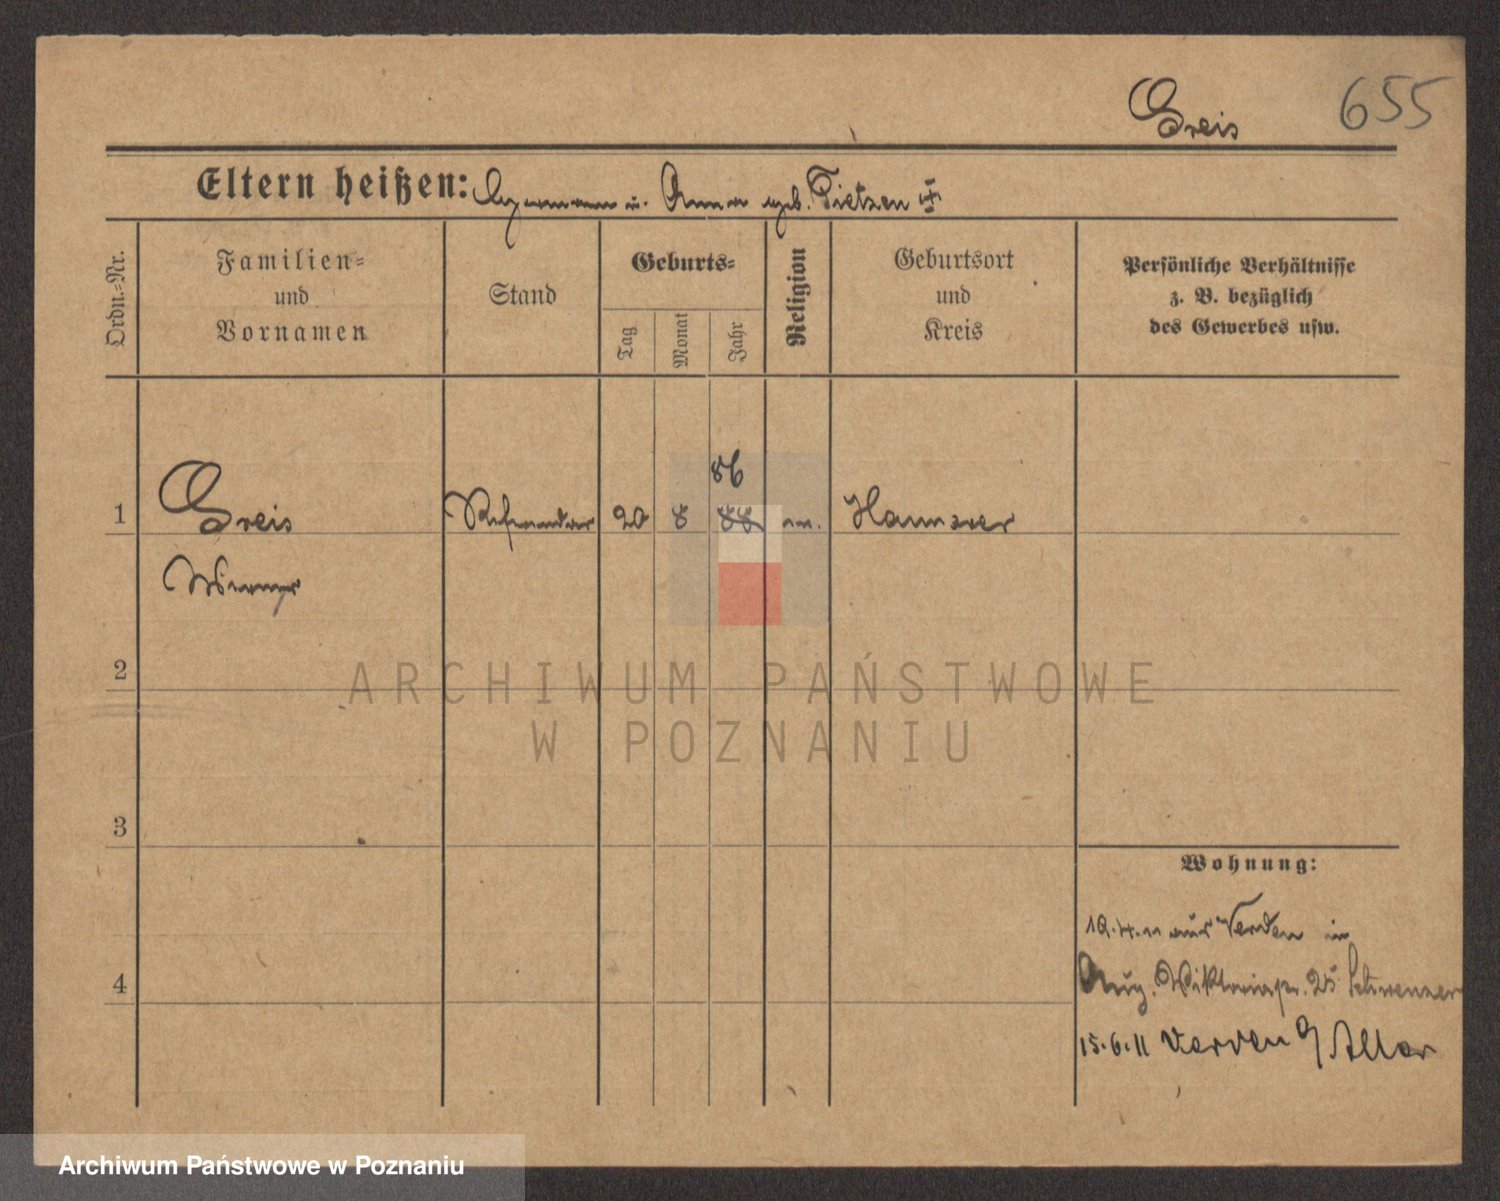 Greis 655
Eltern heißen: Hermann u. Anna geb. Tietzen
Ordn.-Nr.
Familien-
und
Vornamen
Stand
Geburts-
Tag
Monat
Jahr
Religion
Geburtsort
und
Kreis
Persönliche Verhältnisse
z. B. bezüglich
des Gewerbes usw.
86
1 Greis Referendar 20 8 88 Hannover
Werner
2
ARCHIWUM PAŃSTWOWE
W POZNANIU
3
Wohnung:
19.4.11 aus Verden in
4 Aug. Viktoriastr. 25
15.6.11 Verden Aller
Archiwum Państwowe w Poznaniu